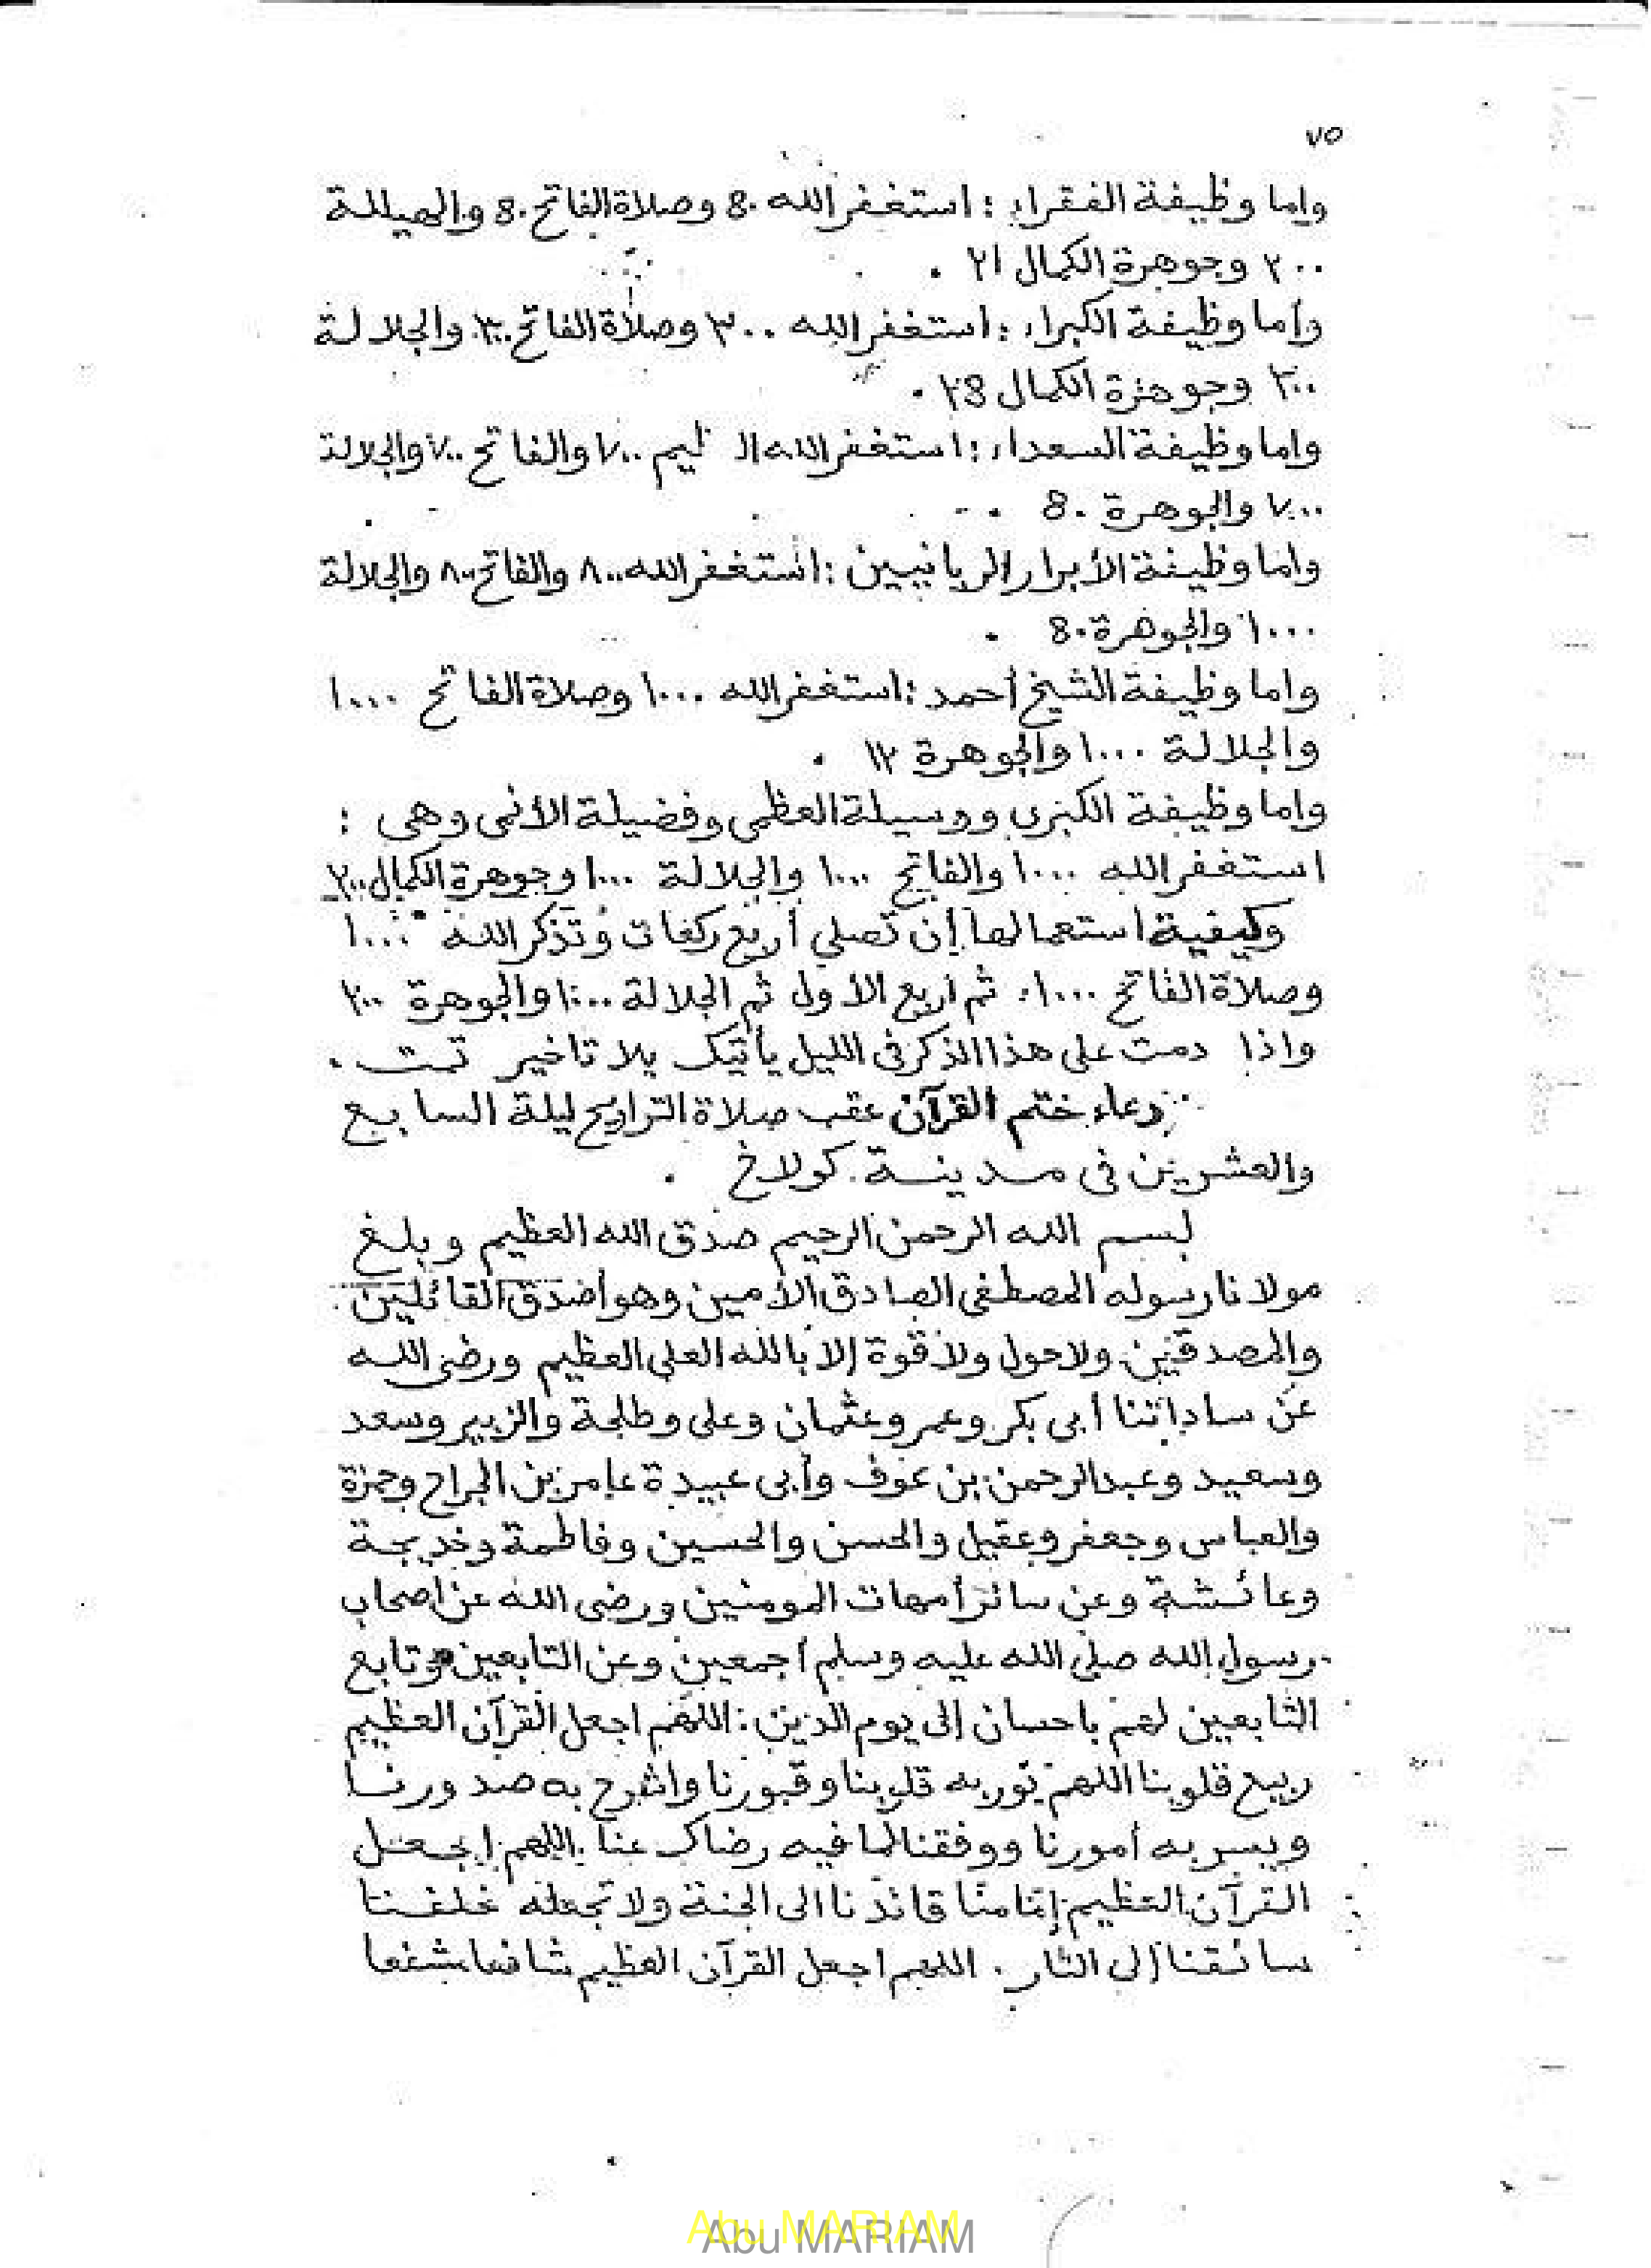 ٧٥
واما وظيفة الفقراء : استغفر الله ٥٠ وصلاة الفاتح ٥٠ والهيللة
٢٠٠ وجوهرة الكمال ٢١ .
وأما وظيفة الكبراء : استغفر الله ٣٠٠ وصلاة الفاتح ٣٠٠ والجلالة
٣٠٠ وجوهرة الكمال .
واما وظيفة السعداء : استغفر الله ٧٠٠ والفاتح ٧٠٠ والجلالة
٧٠٠ والجوهرة ٥٠ .
واما وظيفة الأبرار الربانيين : استغفر الله ٨٠٠ والفاتح ٨٠٠ والجلالة
١٠٠٠ والجوهرة ٥٠ .
واما وظيفة الشيخ أحمد : استغفر الله ١٠٠٠ وصلاة الفاتح ١٠٠٠
والجلالة ١٠٠٠ والجوهرة ١٢ .
واما وظيفة الكبرى ووسيلة العظمى وفضيلة الأنمى وهى :
استغفر الله ١٠٠٠ والفاتح ١٠٠٠ والجلالة ١٠٠٠ وجوهرة الكمال ٢٠٠
وكيفية استعمالها إن تصلي أربع ركعات وتذكر الله ١٠٠٠
وصلاة الفاتح ١٠٠٠ ثم اربع الأول ثم الجلالة ١٠٠٠ والجوهرة ٢٠٠
واذا دمت على هذا الذكر فى الليل يأتيك بلا تاخير تمت .
دعاء ختم القرآن عقب صلاة التراويح ليلة السابع
والعشرين فى مدينة كولاخ .
بسم الله الرحمن الرحيم صدق الله العظيم وبلغ
مولانا رسوله المصطفى الصادق الأمين وهو أصدق القائلين
والمصدقين ولاحول ولا قوة إلا بالله العلى العظيم ورضى الله
عن ساداتنا أبى بكر وعمر وعثمان وعلى وطلحة والزبير وسعد
وسعيد وعبد الرحمن بن عوف وأبى عبيدة عامر بن الجراح وحمزة
والعباس وجعفر وعقيل والحسن والحسين وفاطمة وخديجة
وعائشة وعن سائر أمهات المومنين ورضى الله عن أصحاب
رسول الله صلى الله عليه وسلم أجمعين وعن التابعين وتابع
التابعين لهم باحسان إلى يوم الدين : اللهم اجعل القرآن العظيم
ربيع قلوبنا اللهم نور به قلوبنا وقبورنا واشرح به صدورنا
ويسر به أمورنا ووفقنا لما فيه رضاك عنا . اللهم اجعل
القرآن العظيم إمامنا قائدنا الى الجنة ولا تجعله خلفنا
سائقنا إلى النار . اللهم اجعل القرآن العظيم شافعا مشفعا
Abu MARIAM